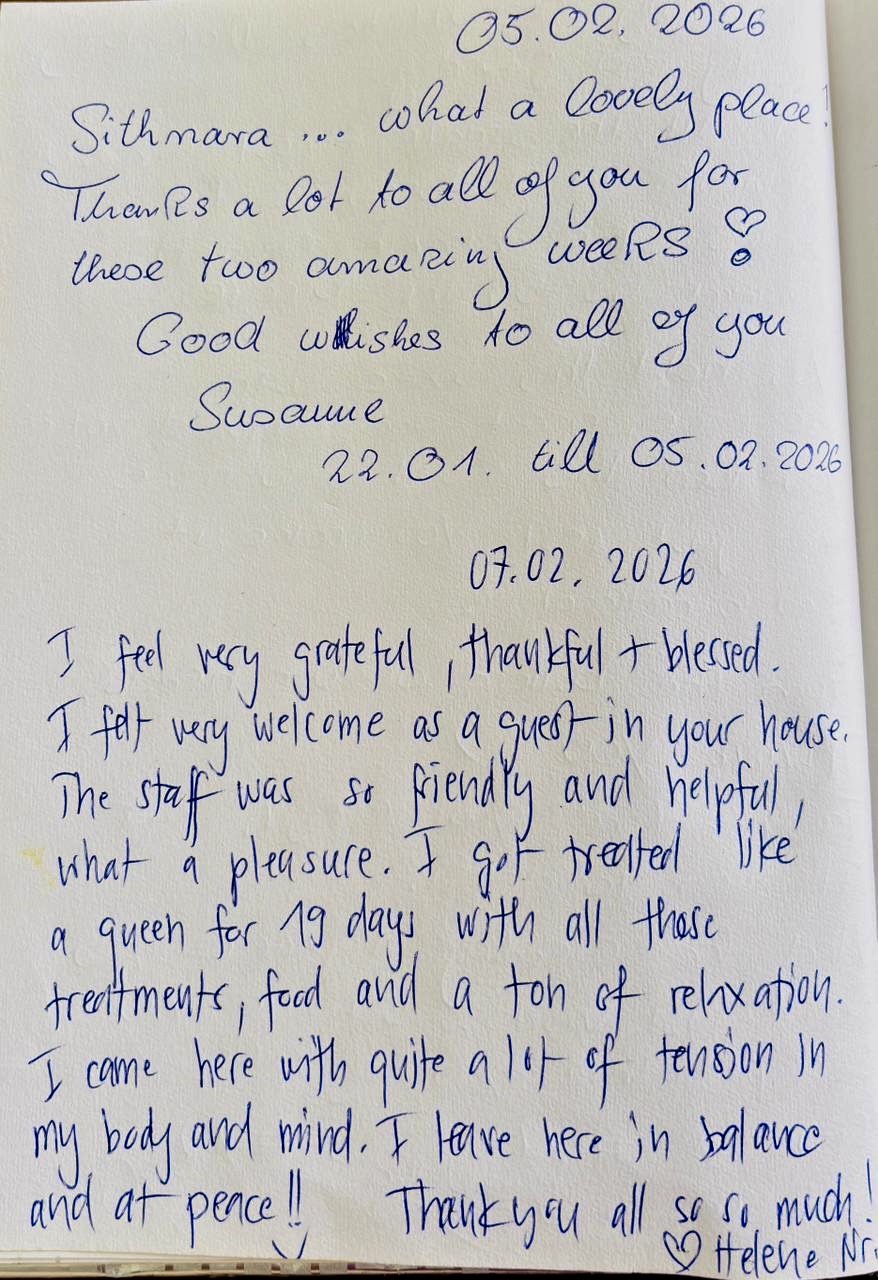 05.02.2026
Sithmara ... what a lovely place!
Thanks a lot to all of you for
these two amazing weeks
Good wishes to all of you
Susanne
22.01. till 05.02.2026
07.02.2026
I feel very grateful, thankful + blessed.
I felt very welcome as a guest in your house.
The staff was so friendly and helpful,
what a pleasure. I got treated like
a queen for 19 days with all those
treatments, food and a ton of relaxation.
I came here with quite a lot of tension in
my body and mind. I leave here in balance
and at peace!! Thank you all so so much!
♡ Helene